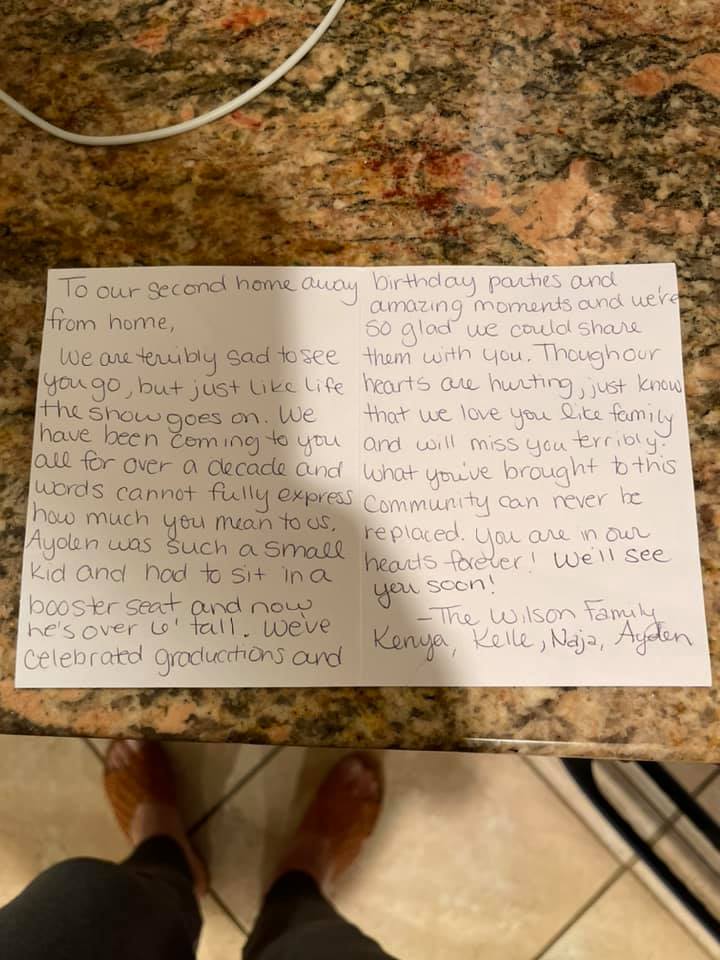 To our second home away
from home,
We are terribly sad to see
you go, but just like life
the show goes on. We
have been coming to you
all for over a decade and
words cannot fully express
how much you mean to us.
Ayden was such a small
kid and had to sit in a
booster seat and now
he's over 6' tall. We've
celebrated graduations and
birthday parties and
amazing moments and we're
so glad we could share
them with you. Though our
hearts are hurting, just know
that we love you like family
and will miss you terribly.
What you've brought to this
community can never be
replaced. You are in our
hearts forever! We'll see
you soon!
-The Wilson Family
Kenya, Kelle, Naja, Ayden